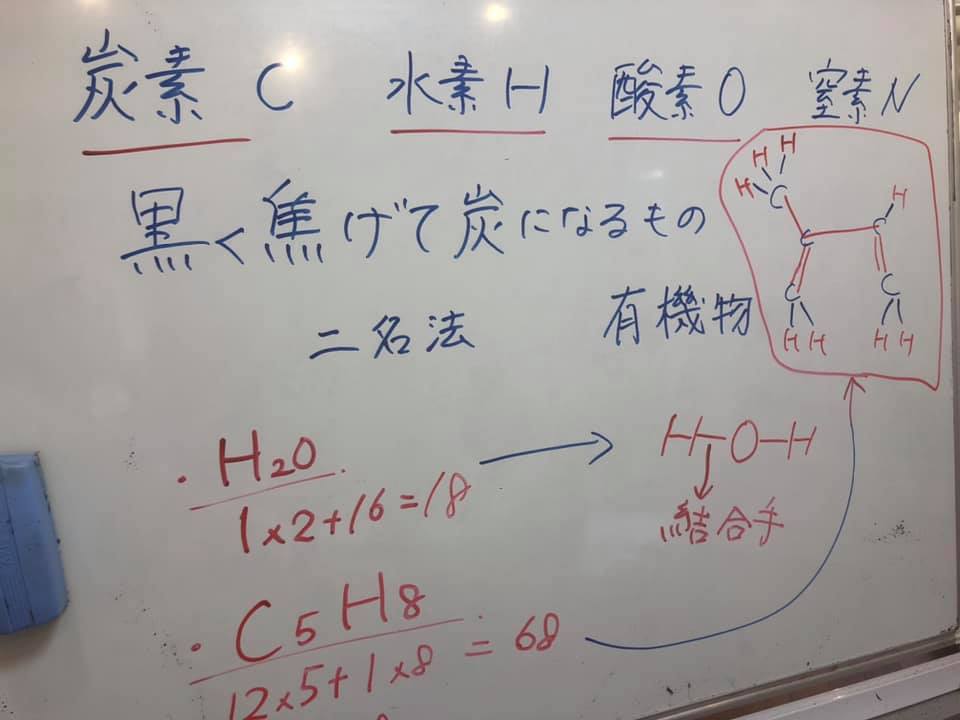 炭素 C 水素 H 酸素 O 窒素 N
黒く焦げて炭になるもの
二名法 有機物
H H H C C C H C C H H H H
・H₂O
1×2+16=18
H-O-H
結合手
・C₅H₈
12×5+1×8 = 68